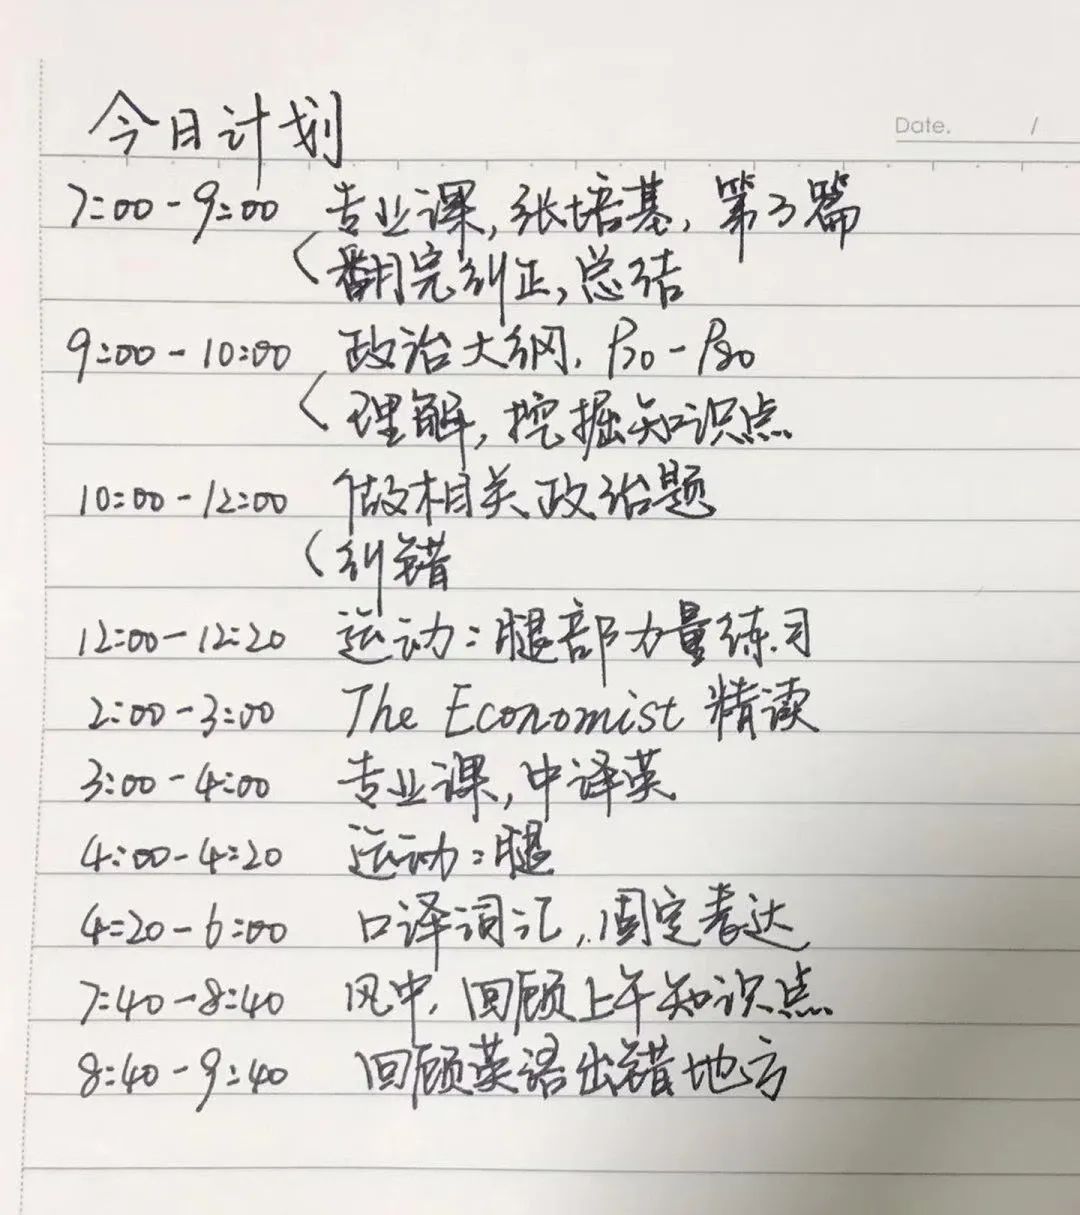 今日计划
Date. /
7:00-9:00 专业课,张培基,第3篇
(翻完纠正,总结
9:00-10:00 政治大纲. P30-P80
(理解,挖掘知识点
10:00-12:00 做相关政治题
(纠错
12:00-12:20 运动:腿部力量练习
2:00-3:00 The Economist 精读
3:00-4:00 专业课,中译英
4:00-4:20 运动:腿
4:20-6:00 口译词汇,固定表达
7:40-8:40 风中,回顾上午知识点
8:40-9:40 回顾英语出错地方